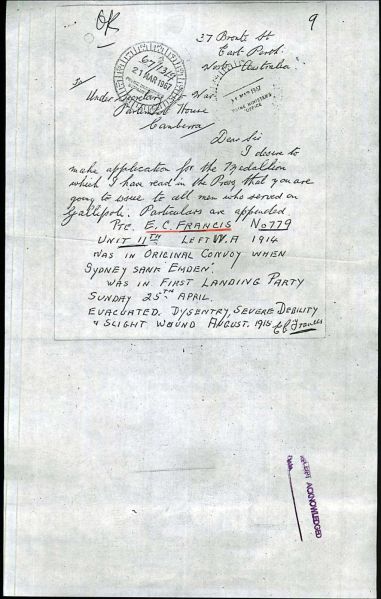 OK
9
27 Bronte St
East Perth
West Australia
To
Under Secretary War
Parliament House
Canberra
67/1319
21 MAR 1967
PRIME MINISTER'S
OFFICE
Dear Sir
I desire to
make application for the Medallion
which I have read in the Press that you are
going to issue to all men who served on
Gallipoli. Particulars are appended.
Pte. E. C. FRANCIS No 779
UNIT 11TH LEFT W.A 1914
WAS IN ORIGINAL CONVOY WHEN
SYDNEY SANK EMDEN.
WAS IN FIRST LANDING PARTY
SUNDAY 25TH APRIL.
EVACUATED. DYSENTRY, SEVERE DEBILITY
& SLIGHT WOUND AUGUST. 1915 E C Francis
ACKNOWLEDGED